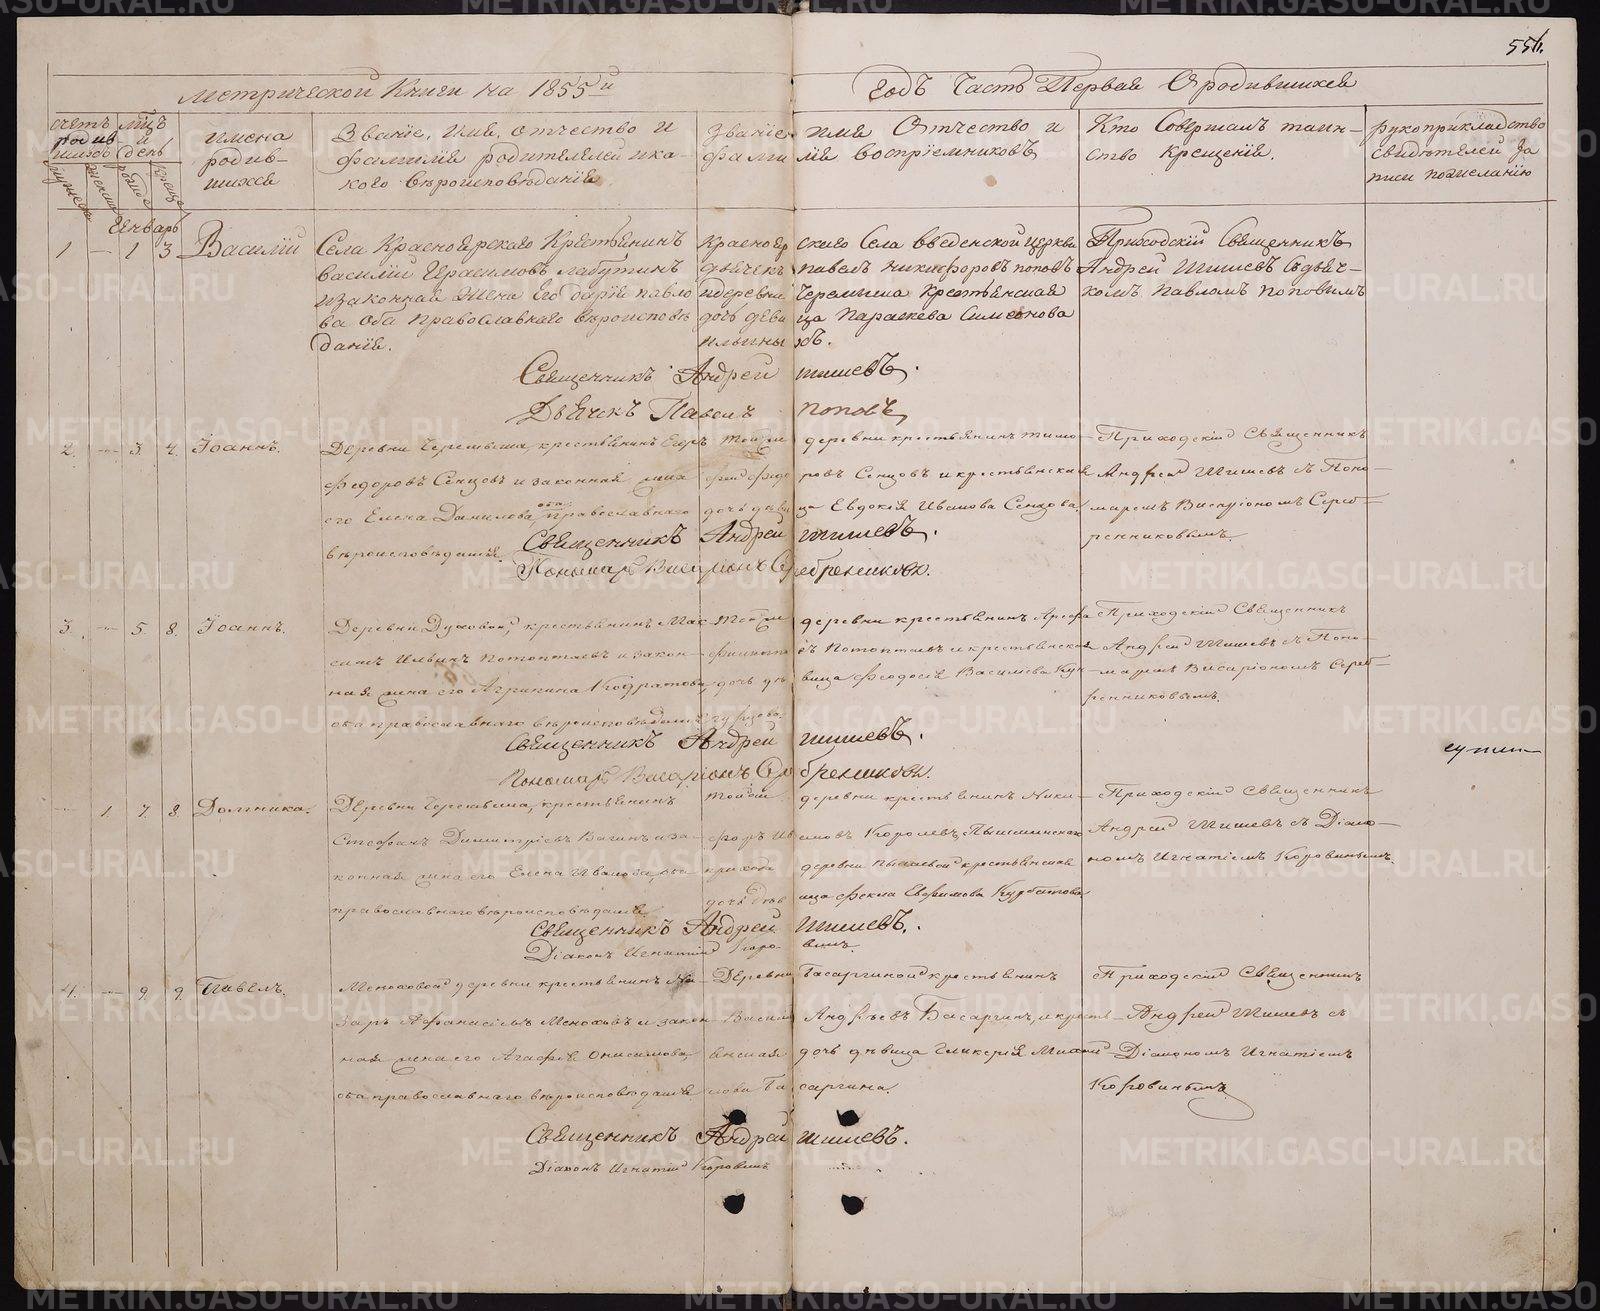 Метрической Книги на 1855й
Годъ Часть Первая О родившихся
счетъ родив-шихся
мцъ и день
мужеска
женска
рожде
креще
имена родив-шихся
Званіе, имя, отчество и
фамилія родителей и ка-
кого вѣроисповѣданія.
Званіе имя Отчество и
фамилія воспріемниковъ
Кто Совершалъ таин-
ство крещенія.
рукоприкладство
свидѣтелей за
писи по желанію
Январь
1 — 1 3 Василій
Села Красноярскаго Крестьянинъ
василій Герасимовъ лабутинъ
и законная Жена Его дарія павло
ва Оба Православнаго вѣроисповѣ
данія.
Краснояр скаго Села введенской церкви
дьячекъ павелъ никифоровъ поповъ
и деревни Черемыша крестьянская
дочь деви ца Параскева Симеонова
ильины хъ.
Приходскій Священникъ
Андрей Шишевъ Съ дьяч-
комъ Павломъ Поповымъ
Священникъ Андрей шишевъ.
Дьячекъ Павелъ поповъ
2. — 3. 4. Іоаннъ.
Деревни Черемыша, крестьянинъ Егоръ
Федоровъ Сенцовъ и законная жена
его Елена Данилова, оба православнаго
вѣроисповѣданія.
Той же деревни крестьянинъ Тимо-
фей Федо ровъ Сенцовъ и крестьянская
дочь дѣви ца Евдокія Иванова Сенцова.
Приходскій Священникъ
Андрей Шишевъ съ Поно-
маремъ Висаріономъ Сереб-
ренниковымъ.
Священникъ Андрей шишевъ.
Пономарь Висаріонъ Серебрениковъ.
3. — 5. 8. Іоаннъ.
Деревни Духовой, крестьянинъ Мак-
симъ Ильинъ Потоптаевъ и закон-
ная жена его Агрипина Кодратова,
оба православнаго вѣроисповѣданія
Той же деревни крестьянинъ Арефа
Потоптаевъ и крестьянская
дочь дѣ вица Феодосія Васильева Кун
гурцова.
Приходскій Священникъ
Андрей Шишевъ съ Поно-
маремъ Висаріономъ Сереб-
ренниковымъ.
Священникъ Андрей шишевъ.
Пономарь Висаріонъ Серебрениковъ.
— 1. 7. 8. Домника.
Деревни Черемыша, крестьянинъ
Стефанъ Димитріевъ Вагинъ и за-
конная жена его Елена Иванова, оба
православнаго вѣроисповѣданія
Той же деревни крестьянинъ Ники-
форъ Ив ановъ Королевъ, Пышминскаго
прихода деревни Пылаевой крестьянская
дочь дѣв ица Фекла Евфимова Курбатова
Приходскій Священникъ
Андрей Шишевъ съ Діако-
номъ Игнатіемъ Коровинымъ.
Священникъ Андрей Шишевъ.
Діаконъ Игнатій Коро-винъ.
4. — 9. 9. Павелъ.
Меноховой деревни крестьянинъ На-
заръ Афанасіевъ Меноховъ и закон
ная жена его Агафія Онисимова,
оба православнаго вѣроисповѣданія
Деревни Басаргиной крестьянинъ
Васили Андрѣевъ Басаргинъ, и кресть-
янская дочь дѣвица Гликерія Михай-
лова Ба саргина.
Приходскій Священникъ
Андрей Шишевъ съ
Діакономъ Игнатіемъ
Коровинымъ
Священникъ Андрей шишевъ.
Діаконъ Игнатій Коровинъ
METRIKI.GASO-URAL.RU